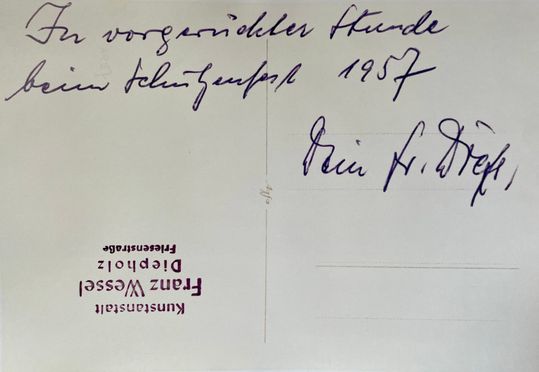 In vorgerückter Stunde
beim Schützenfest 1957
Dein Fr.
Kunstanstalt
Franz Wessel
Diepholz
Friesenstraße